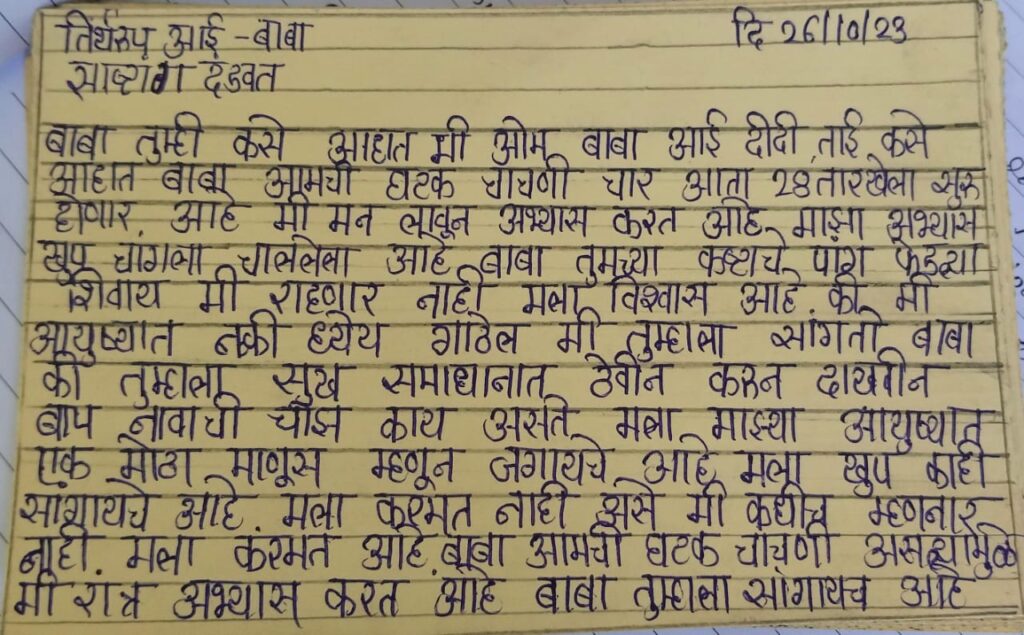 तिर्थरुप आई - बाबा दि 26/10/23
साष्टांग दंडवत
बाबा तुम्ही कसे आहात मी ओम बाबा आई दीदी ताई कसे
आहात बाबा आमची घटक चाचणी चार आता 28 तारखेला सुरु
होणार. आहे मी मन लावून अभ्यास करत आहे. माझा अभ्यास
खुप चांगला चाललेला आहे बाबा तुमच्या कष्टाचे पांग फेडल्या
शिवाय मी राहणार नाही मला विश्वास आहे. की मी
आयुष्यात नक्की ध्येय गाठेल मी तुम्हाला सांगतो बाबा
की तुम्हाला सुख समाधानात ठेवीन करुन दाखवीन
बाप नावाची चीझ काय असते मला माझ्या आयुष्यात
एक मोठा माणूस म्हणून जगायचे आहे मला खुप काही
सांगायचे आहे. मला करमत नाही असे मी कधीच म्हणनार
नाही. मला करमत आहे. बाबा आमची घटक चाचणी असल्यामुळे
मी रात्र अभ्यास करत आहे बाबा तुम्हाला सांगायच आहे